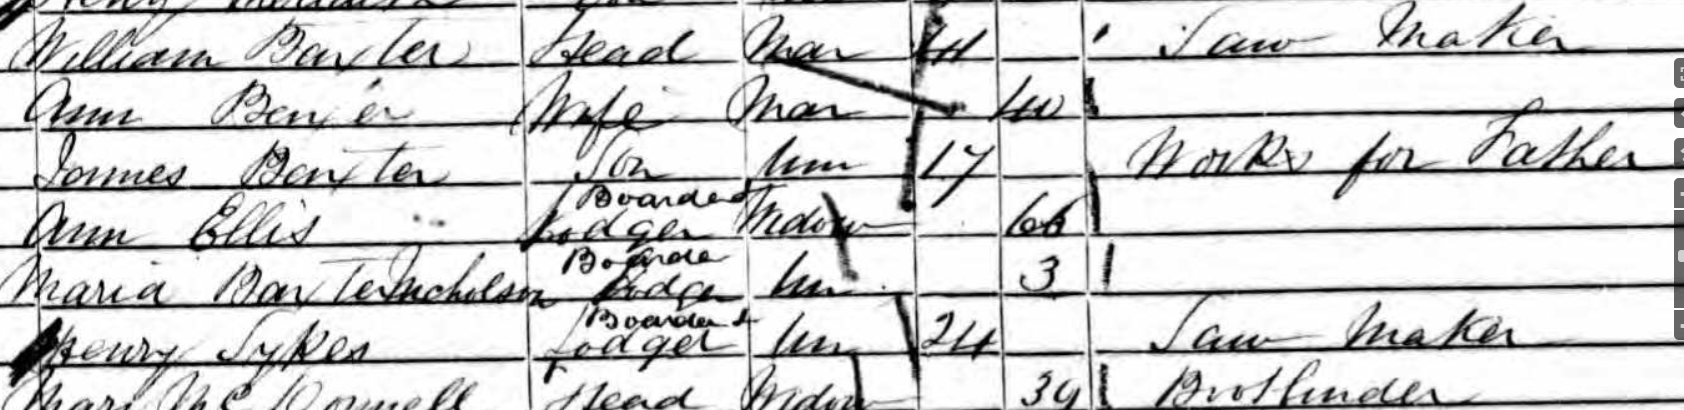 William Baxter Head Mar 41 Saw Maker
Ann Baxter Wife Mar 40
James Baxter Son Un 17 Works for Father
Boarder &
Ann Ellis Lodger Widow 66
Boarder
Maria Baxter Nicholson Lodger Un 3
Boarder &
Henry Sykes Lodger Un 24 Saw Maker
Head Widow 39